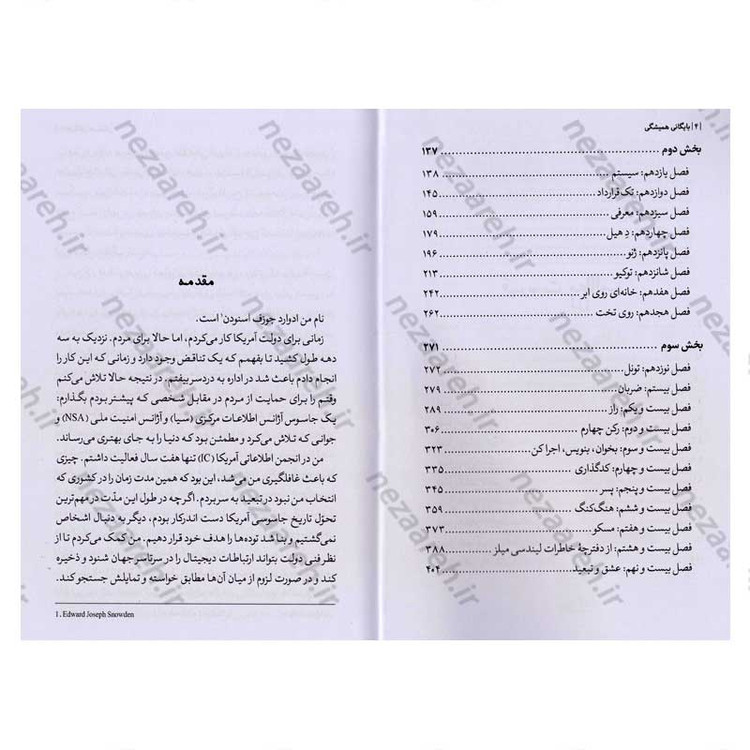 |۴| بایگانی همیشگی
بخش دوم ........ ۱۳۷
فصل یازدهم: سیستم ........ ۱۳۸
فصل دوازدهم: تک‌قرارداد ........ ۱۴۵
فصل سیزدهم: معرفی ........ ۱۵۹
فصل چهاردهم: دِ هیل ........ ۱۷۹
فصل پانزدهم: ژنو ........ ۱۹۶
فصل شانزدهم: توکیو ........ ۲۱۳
فصل هفدهم: خانه‌ای روی ابر ........ ۲۴۲
فصل هجدهم: روی تخت ........ ۲۶۲
بخش سوم ........ ۲۷۱
فصل نوزدهم: تونل ........ ۲۷۲
فصل بیستم: ضربان ........ ۲۷۹
فصل بیست و یکم: راز ........ ۲۸۹
فصل بیست و دوم: رکن چهارم ........ ۳۰۶
فصل بیست و سوم: بخوان، بنویس، اجرا کن ........ ۳۲۳
فصل بیست و چهارم: کدگذاری ........ ۳۳۵
فصل بیست و پنجم: پسر ........ ۳۴۵
فصل بیست و ششم: هنگ‌کنگ ........ ۳۵۹
فصل بیست و هفتم: مسکو ........ ۳۷۳
فصل بیست و هشتم: از دفترچهٔ خاطرات لیندسی میلز ........ ۳۸۸
فصل بیست و نهم: عشق و تبعید ........ ۴۰۴
مقدمه
نام من ادوارد جوزف اسنودن¹ است.
زمانی برای دولت آمریکا کار می‌کردم، اما حالا برای مردم. نزدیک به سه
دهه طول کشید تا بفهمم که یک تناقض وجود دارد و زمانی که این کار را
انجام دادم باعث شد در اداره به دردسر بیفتم. در نتیجه حالا تلاش می‌کنم
وقتم را برای حمایت از مردم در مقابل شخصی که پیشتر بودم بگذارم:
یک جاسوس آژانس اطلاعات مرکزی (سیا) و آژانس امنیت ملی (NSA) و
جوانی که تلاش می‌کرد و مطمئن بود که دنیا را به جای بهتری می‌رساند.
من در انجمن اطلاعاتی آمریکا (IC) تنها هفت سال فعالیت داشتم. چیزی
که باعث غافلگیری من می‌شد، این بود که همین مدت زمان را در کشوری که
انتخاب من نبود در تبعید به سر بردم. اگرچه در طول این مدّت در مهم‌ترین
تحوّل تاریخ جاسوسی آمریکا دست اندرکار بودم، دیگر به دنبال اشخاص
نمی‌گشتیم و بنا شد توده‌ها را هدف خود قرار دهیم. من کمک می‌کردم تا از
نظر فنی دولت بتواند ارتباطات دیجیتال را در سرتاسر جهان شنود و ذخیره
کند و در صورت لزوم از میان آن‌ها مطابق خواسته و تمایلش جستجو کند.
1. Edward Joseph Snowden
nezaareh.ir
nezaareh.ir
nezaareh.ir
nezaareh.ir
nezaareh.ir
nezaareh.ir